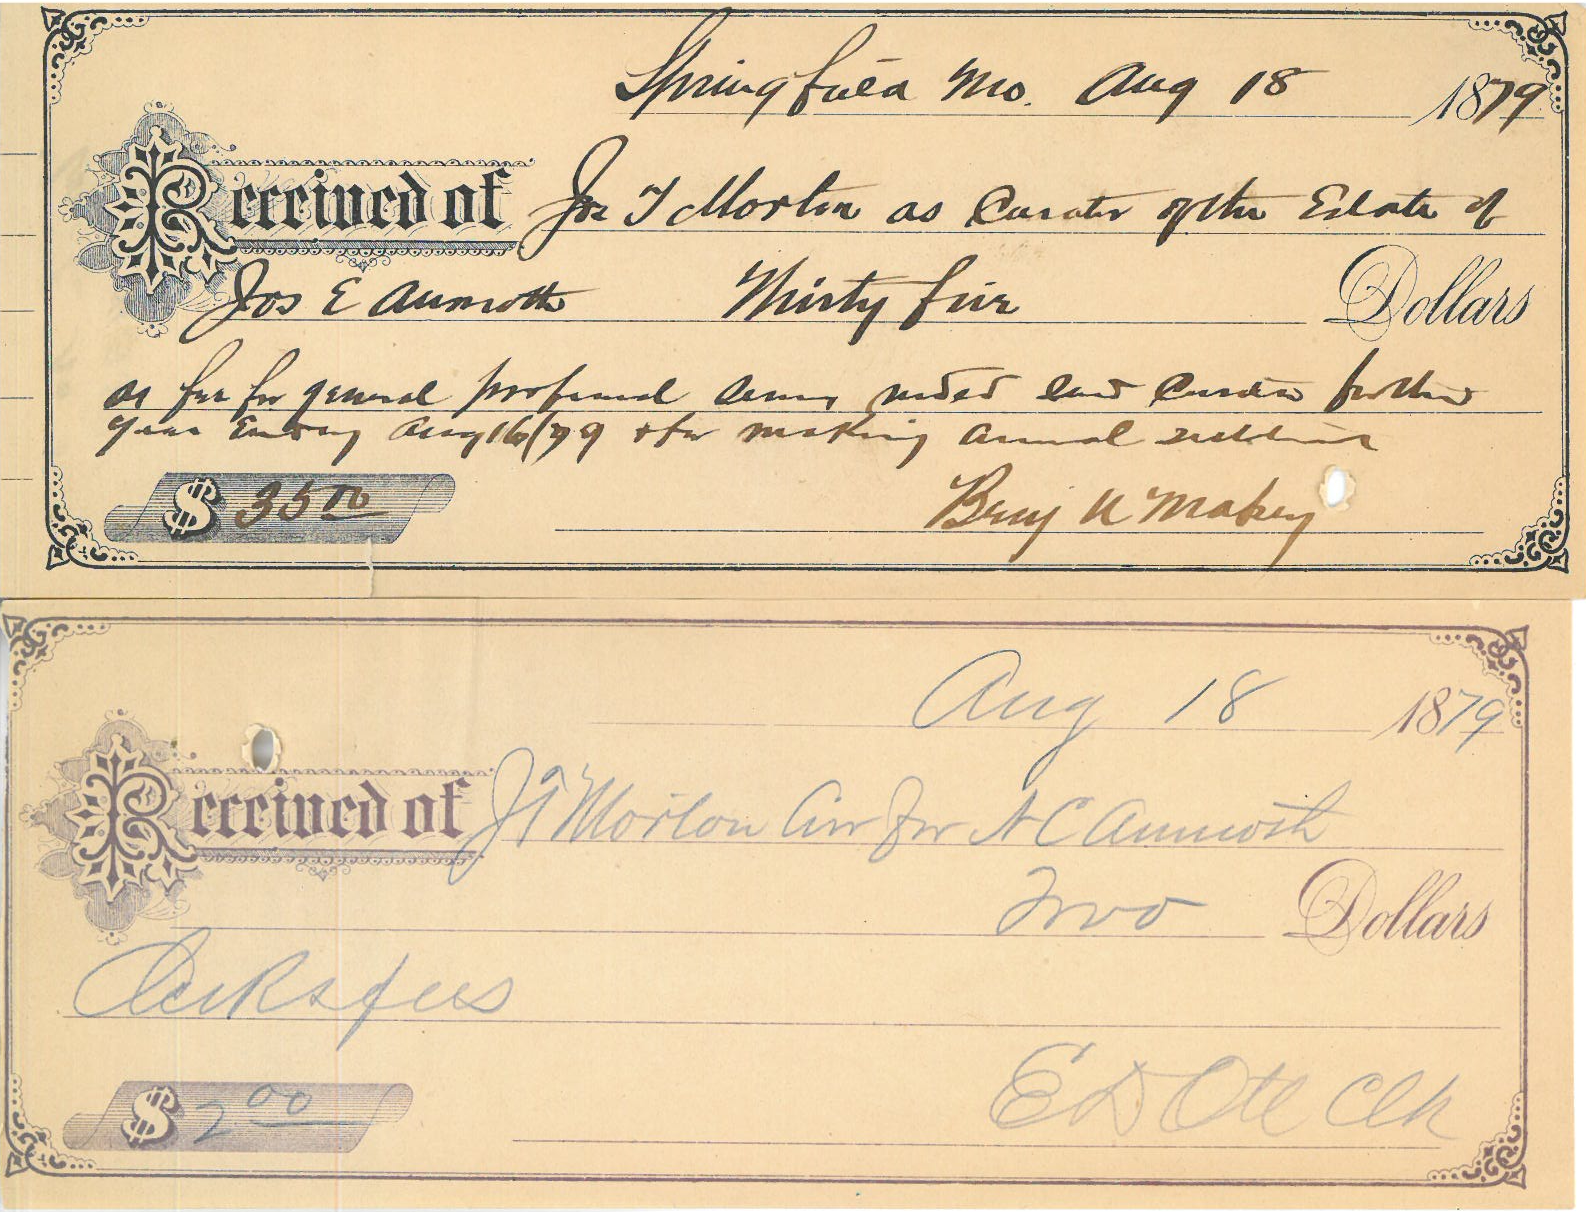 Springfield Mo. Aug 18 1879
Received of Jos T Morton as Curator of the Estate of
Jos E Aumoth Thirty five Dollars
as fee for general professional services said Curator for the
year Ending Aug 16/79 & for making annual settlement
$ 35 00
Benj U Makey
Aug 18 1879
Received of J T Morton Cur for N C Aumoth
Two Dollars
Clerks fees
$ 2 00
E D Ott Clk